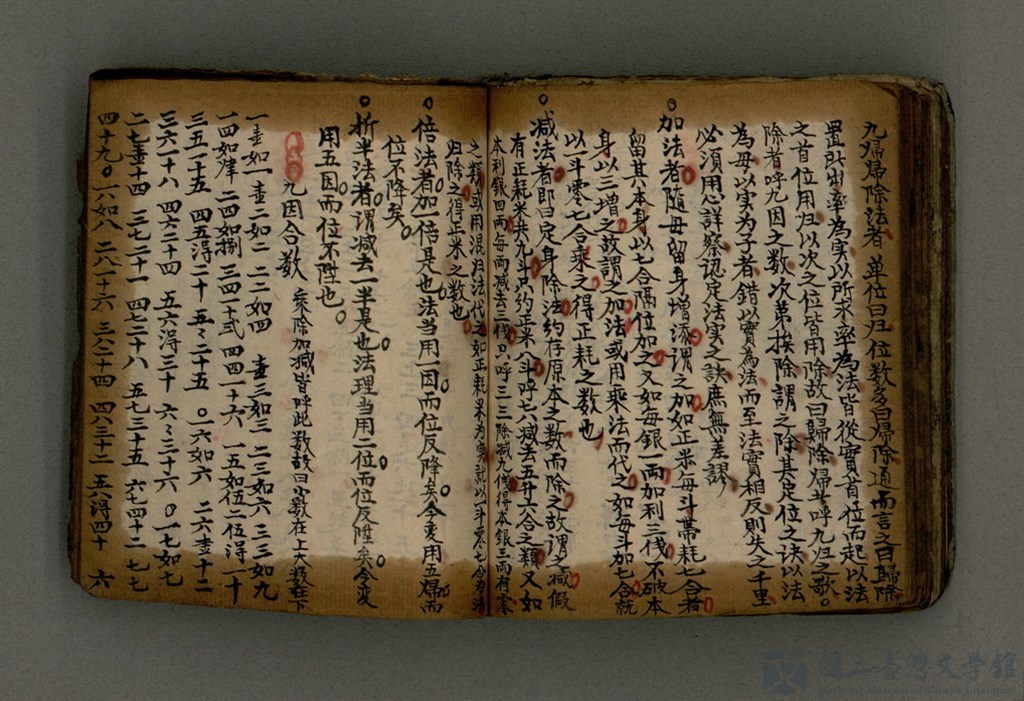 九歸歸除法者單位曰归位数多曰歸除通而言之曰歸除
置所出率為実以所求率為法皆從實首位而起以法
之首位用归以次之位皆用除故曰歸除歸者呼九归之歌
除者呼九因之数次第挨除謂之除其定位之訣以法
為母以实为子者錯以實為法而至法實相反則失之千里
必須用心詳察認定法实之訣庶無差謬
○加法者随母留身增添謂之加如正米每斗帶耗七合者
留其本身以七合隔位加之又如每銀一両加利三伐不破本
身以三增之故謂之加法或用乘法而代之如每斗加七合就
以一斗零七合乘之得正耗之数也
○减法者即曰定身除法约存原本之数而除之故謂之减假
有正耗米共九斗只约正米八斗呼七八减去五升六合之類又如
本利銀四両每両减去三伐只呼三三除减九伐得本銀三両有零
之類或用混归法代之如正耗米为实就以一斗零七合为法
归除之得正米之数也
○倍法者加一倍是也法当用一因而位反降矣今变用五歸而
位不降矣
○折半法者謂减去一半是也法理当用二位而位反陞矣今变
用五因而位不陞也
九因合数 乘除加减皆呼此数故曰小数在上大数在下
一壹如一 壹二如二 二二如四 壹三如三 二三如六 三三如九
一四如肆 二四如捌 三四一十弍 四四一十六 一五如伍 二五得一十
三五一十五 四五得二十 五〻二十五 ○一六如六 二六壹十二
三六一十八 四六二十四 五六得三十 六〻三十六 ○一七如七
二七壹十四 三七二十一 四七二十八 五七三十五 六七四十二 七七
四十九○一八如八 二八一十六 三八二十四 四八三十二 五八得四十 六
國立臺灣文學館
National Museum of Taiwan Literature